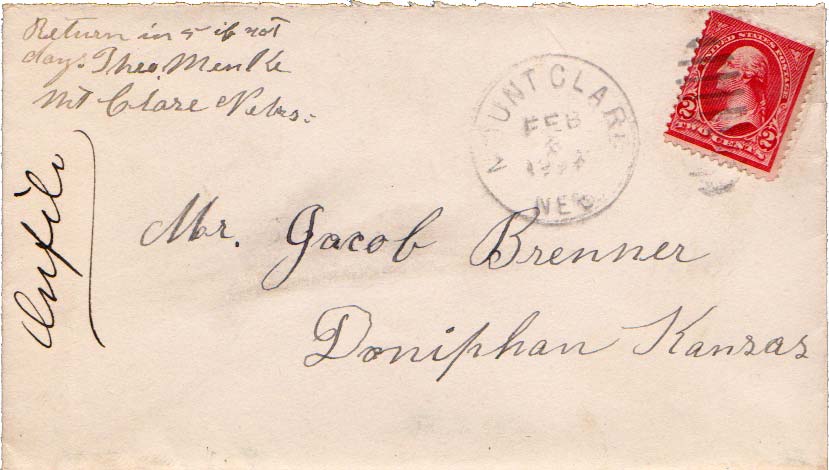 Return in 5 if not
days. Theo. Menke
Mt Clare Nebrs:
MOUNT CLARE
FEB
NEB
UNITED STATES POSTAGE
2 2
TWO CENTS
Mr. Jacob Brenner
Doniphan Kansas